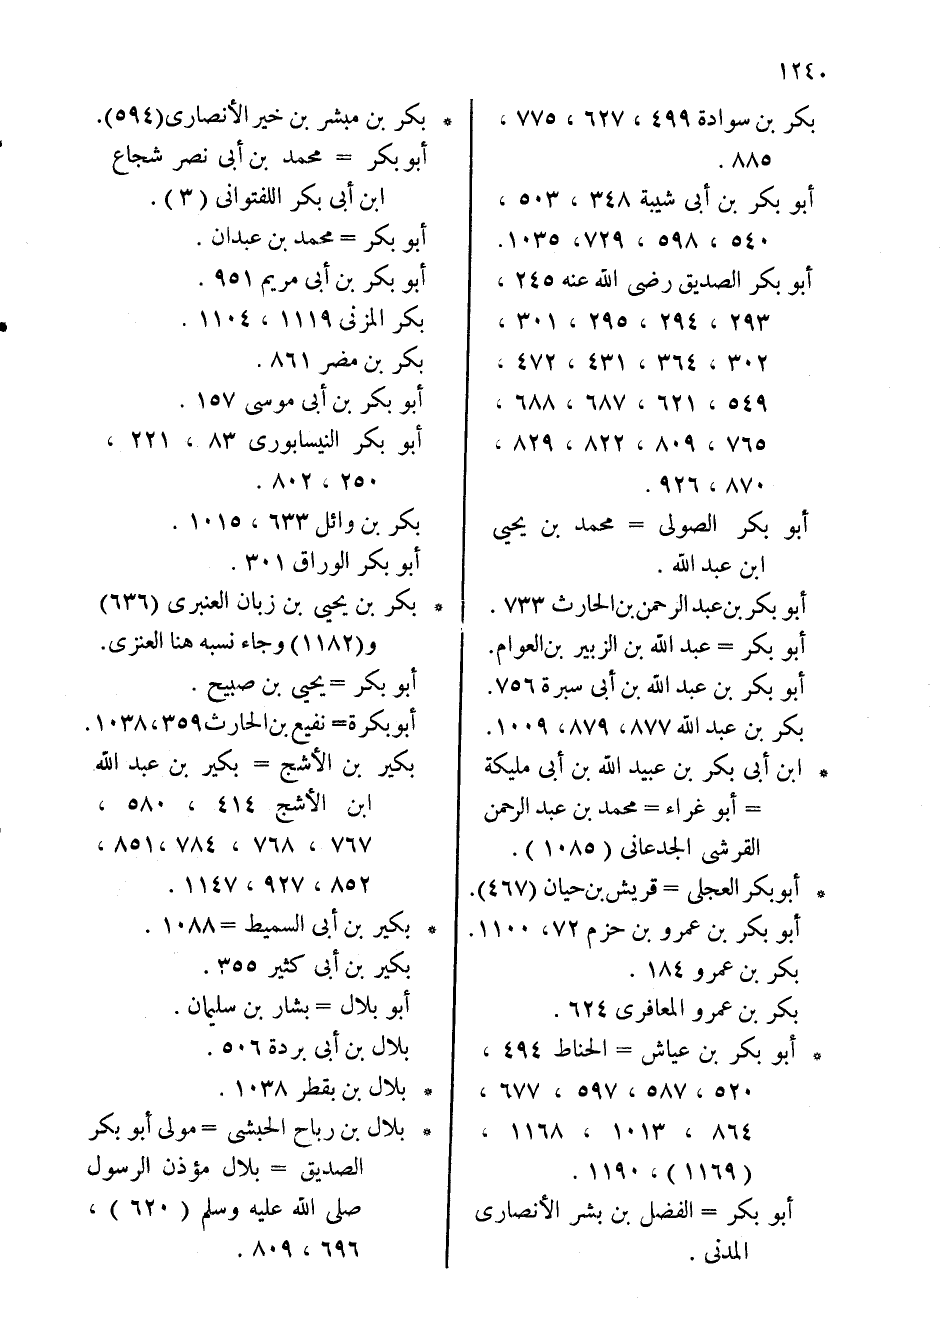 ١٢٤٠
بكر بن سوادة ٤٩٩ ، ٦٢٧ ، ٧٧٥ ،
٨٨٥ .
أبو بكر بن أبى شيبة ٣٤٨ ، ٥٠٣ ،
٥٤٠ ، ٥٩٨ ، ٧٢٩، ١٠٣٥.
أبو بكر الصديق رضى الله عنه ٢٤٥ ،
٢٩٣ ، ٢٩٤ ، ٢٩٥ ، ٣٠١ ،
٣٠٢ ، ٣٦٤ ، ٤٣١ ، ٤٧٢ ،
٥٤٩ ، ٦٢١ ، ٦٨٧ ، ٦٨٨ ،
٧٦٥ ، ٨٠٩ ، ٨٢٢ ، ٨٢٩ ،
٨٧٠ ، ٩٢٦ .
أبو بكر الصولى = محمد بن يحيى
ابن عبد الله .
أبو بكر بن عبد الرحمن بن الحارث ٧٣٣ .
أبو بكر = عبد الله بن الزبير بن العوام.
أبو بكر بن عبد الله بن أبى سبرة ٧٥٦.
بكر بن عبد الله ٨٧٧، ٨٧٩، ١٠٠٩.
* ابن أبى بكر بن عبيد الله بن أبى مليكة
= أبو غراء = محمد بن عبد الرحمن
القرشى الجدعانى ( ١٠٨٥ ) .
* أبو بكر العجلى = قريش بن حيان (٤٦٧).
أبو بكر بن عمرو بن حزم ٧٢، ١١٠٠.
بكر بن عمرو ١٨٤ .
بكر بن عمرو المعافرى ٦٢٤ .
* أبو بكر بن عياش = الحناط ٤٩٤ ،
٥٢٠ ، ٥٨٧ ، ٥٩٧ ، ٦٧٧ ،
٨٦٤ ، ١٠١٣ ، ١١٦٨ ،
(١١٦٩) ، ١١٩٠ .
أبو بكر = الفضل بن بشر الأنصارى
المدنى .
* بكر بن مبشر بن خير الأنصارى(٥٩٤).
أبو بكر = محمد بن أبى نصر شجاع
ابن أبى بكر اللفتوانى ( ٣ ) .
أبو بكر = محمد بن عبدان .
أبو بكر بن أبى مريم ٩٥١ .
بكر المزنى ١١١٩ ، ١١٠٤ .
بكر بن مضر ٨٦١ .
أبو بكر بن أبى موسى ١٥٧ .
أبو بكر النيسابورى ٨٣ ، ٢٢١ ،
٢٥٠ ، ٨٠٢ .
بكر بن وائل ٦٣٣ ، ١٠١٥ .
أبو بكر الوراق ٣٠١ .
* بكر بن يحيى بن زبان العنبرى (٦٣٦)
و(١١٨٢) وجاء نسبه هنا العنزى.
أبو بكر = يحيى بن صبيح .
أبو بكرة = نفيع بن الحارث ٣٥٩، ١٠٣٨.
بكير بن الأشج = بكير بن عبد الله
ابن الأشج ٤١٤ ، ٥٨٠ ،
٧٦٧ ، ٧٦٨ ، ٧٨٤ ، ٨٥١ ،
٨٥٢ ، ٩٢٧ ، ١١٤٧ .
* بكير بن أبى السميط = ١٠٨٨ .
بكير بن أبى كثير ٣٥٥ .
أبو بلال = بشار بن سليمان .
بلال بن أبى بردة ٥٠٦ .
* بلال بن بقطر ١٠٣٨ .
* بلال بن رباح الحبشى = مولى أبو بكر
الصديق = بلال مؤذن الرسول
صلى الله عليه وسلم ( ٦٢٠ ) ،
٦٩٦ ، ٨٠٩ .